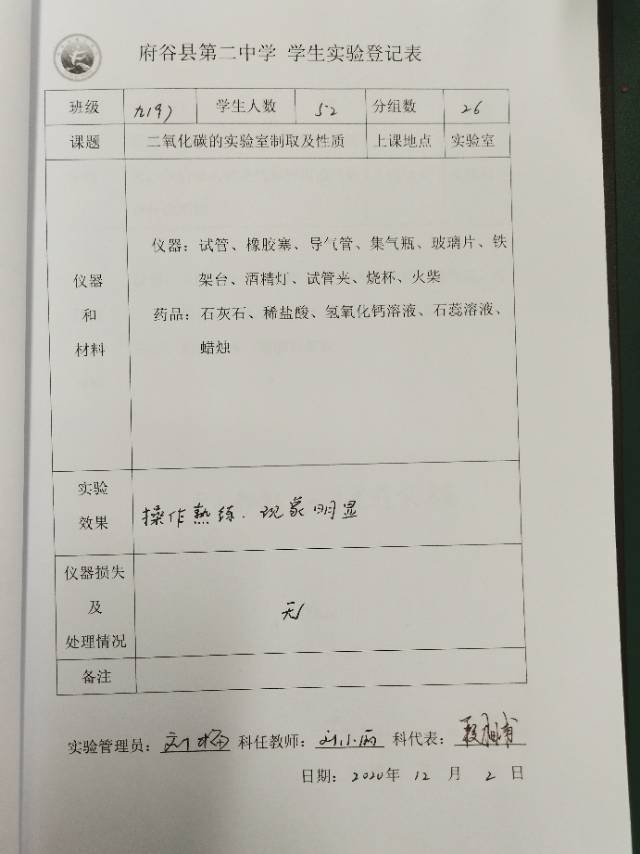 府谷县第二中学 学生实验登记表
班级 九(9) 学生人数 52 分组数 26
课题 二氧化碳的实验室制取及性质 上课地点 实验室
仪器
和
材料
仪器：试管、橡胶塞、导气管、集气瓶、玻璃片、铁
架台、酒精灯、试管夹、烧杯、火柴
药品：石灰石、稀盐酸、氢氧化钙溶液、石蕊溶液、
蜡烛
实验
效果
操作熟练．现象明显
仪器损失
及
处理情况
无
备注
实验管理员：刘梅 科任教师：刘小丙 科代表：
日期：2020年 12 月 2 日